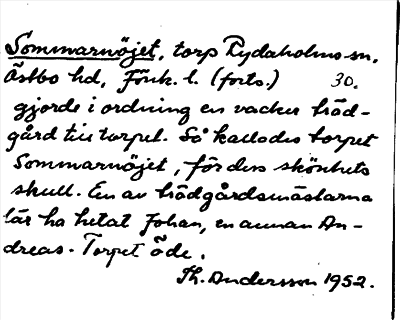 Sommarnöjet, torp Rydaholms sn.
Östbo hd, Jönk. l. (forts.) 30.
gjorde i ordning en vacker träd-
gård till torpet. Så kallades torpet
Sommarnöjet, för dess skönhets
skull. En av trädgårdsmästarna
lär ha hetat Johan, en annan An-
dreas. Torpet öde.
Th. Andersson 1952.